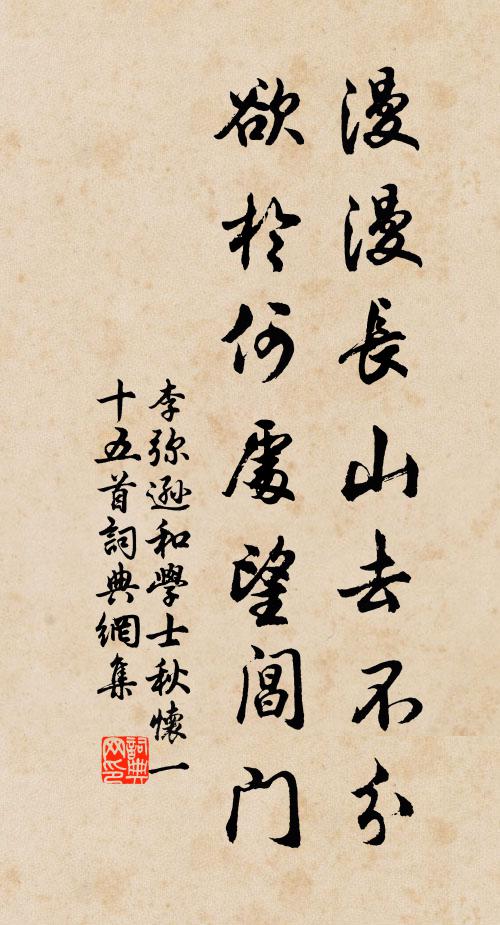 漫漫長山去不分
欲於何處望閶門
李弥遜和學士秋懷一
十五首詞典網集
詞典網印